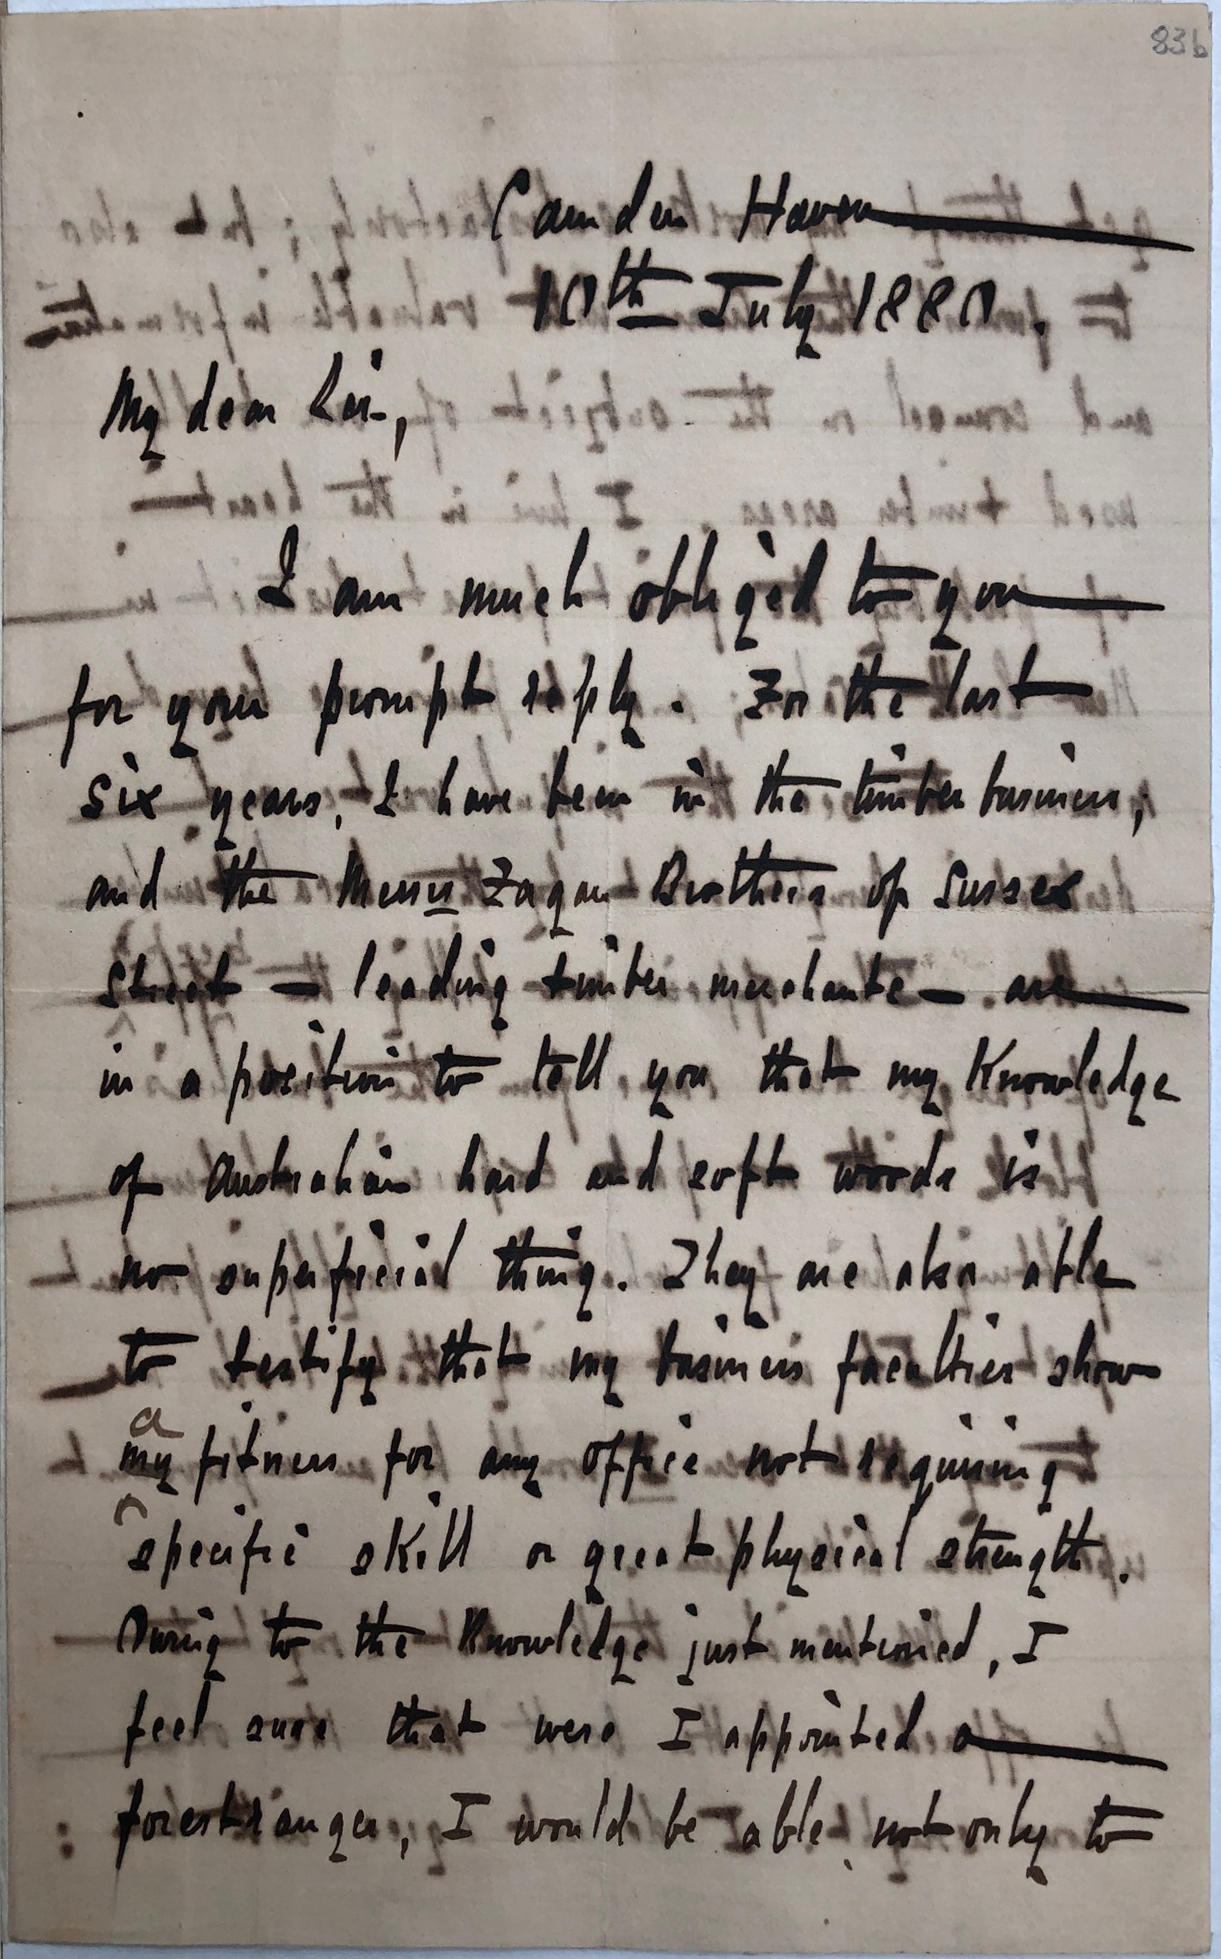 83b
Camden Haven
10th July 1880.
My dear Sir,
I am much obliged to you
for your prompt reply. For the last
six years, I have been in the timber business;
and the Messrs Fagan Brothers of Sussex
street — leading timber merchants — are
in a position to tell you that my Knowledge
of Australian hard and soft woods is
no superficial thing. They are also able
to testify that my business faculties show
a
my fitness for any office not requiring
specific skill or great physical strength.
Owing to the Knowledge just mentioned, I
feel sure that were I appointed a
forest ranger, I would be able not only to